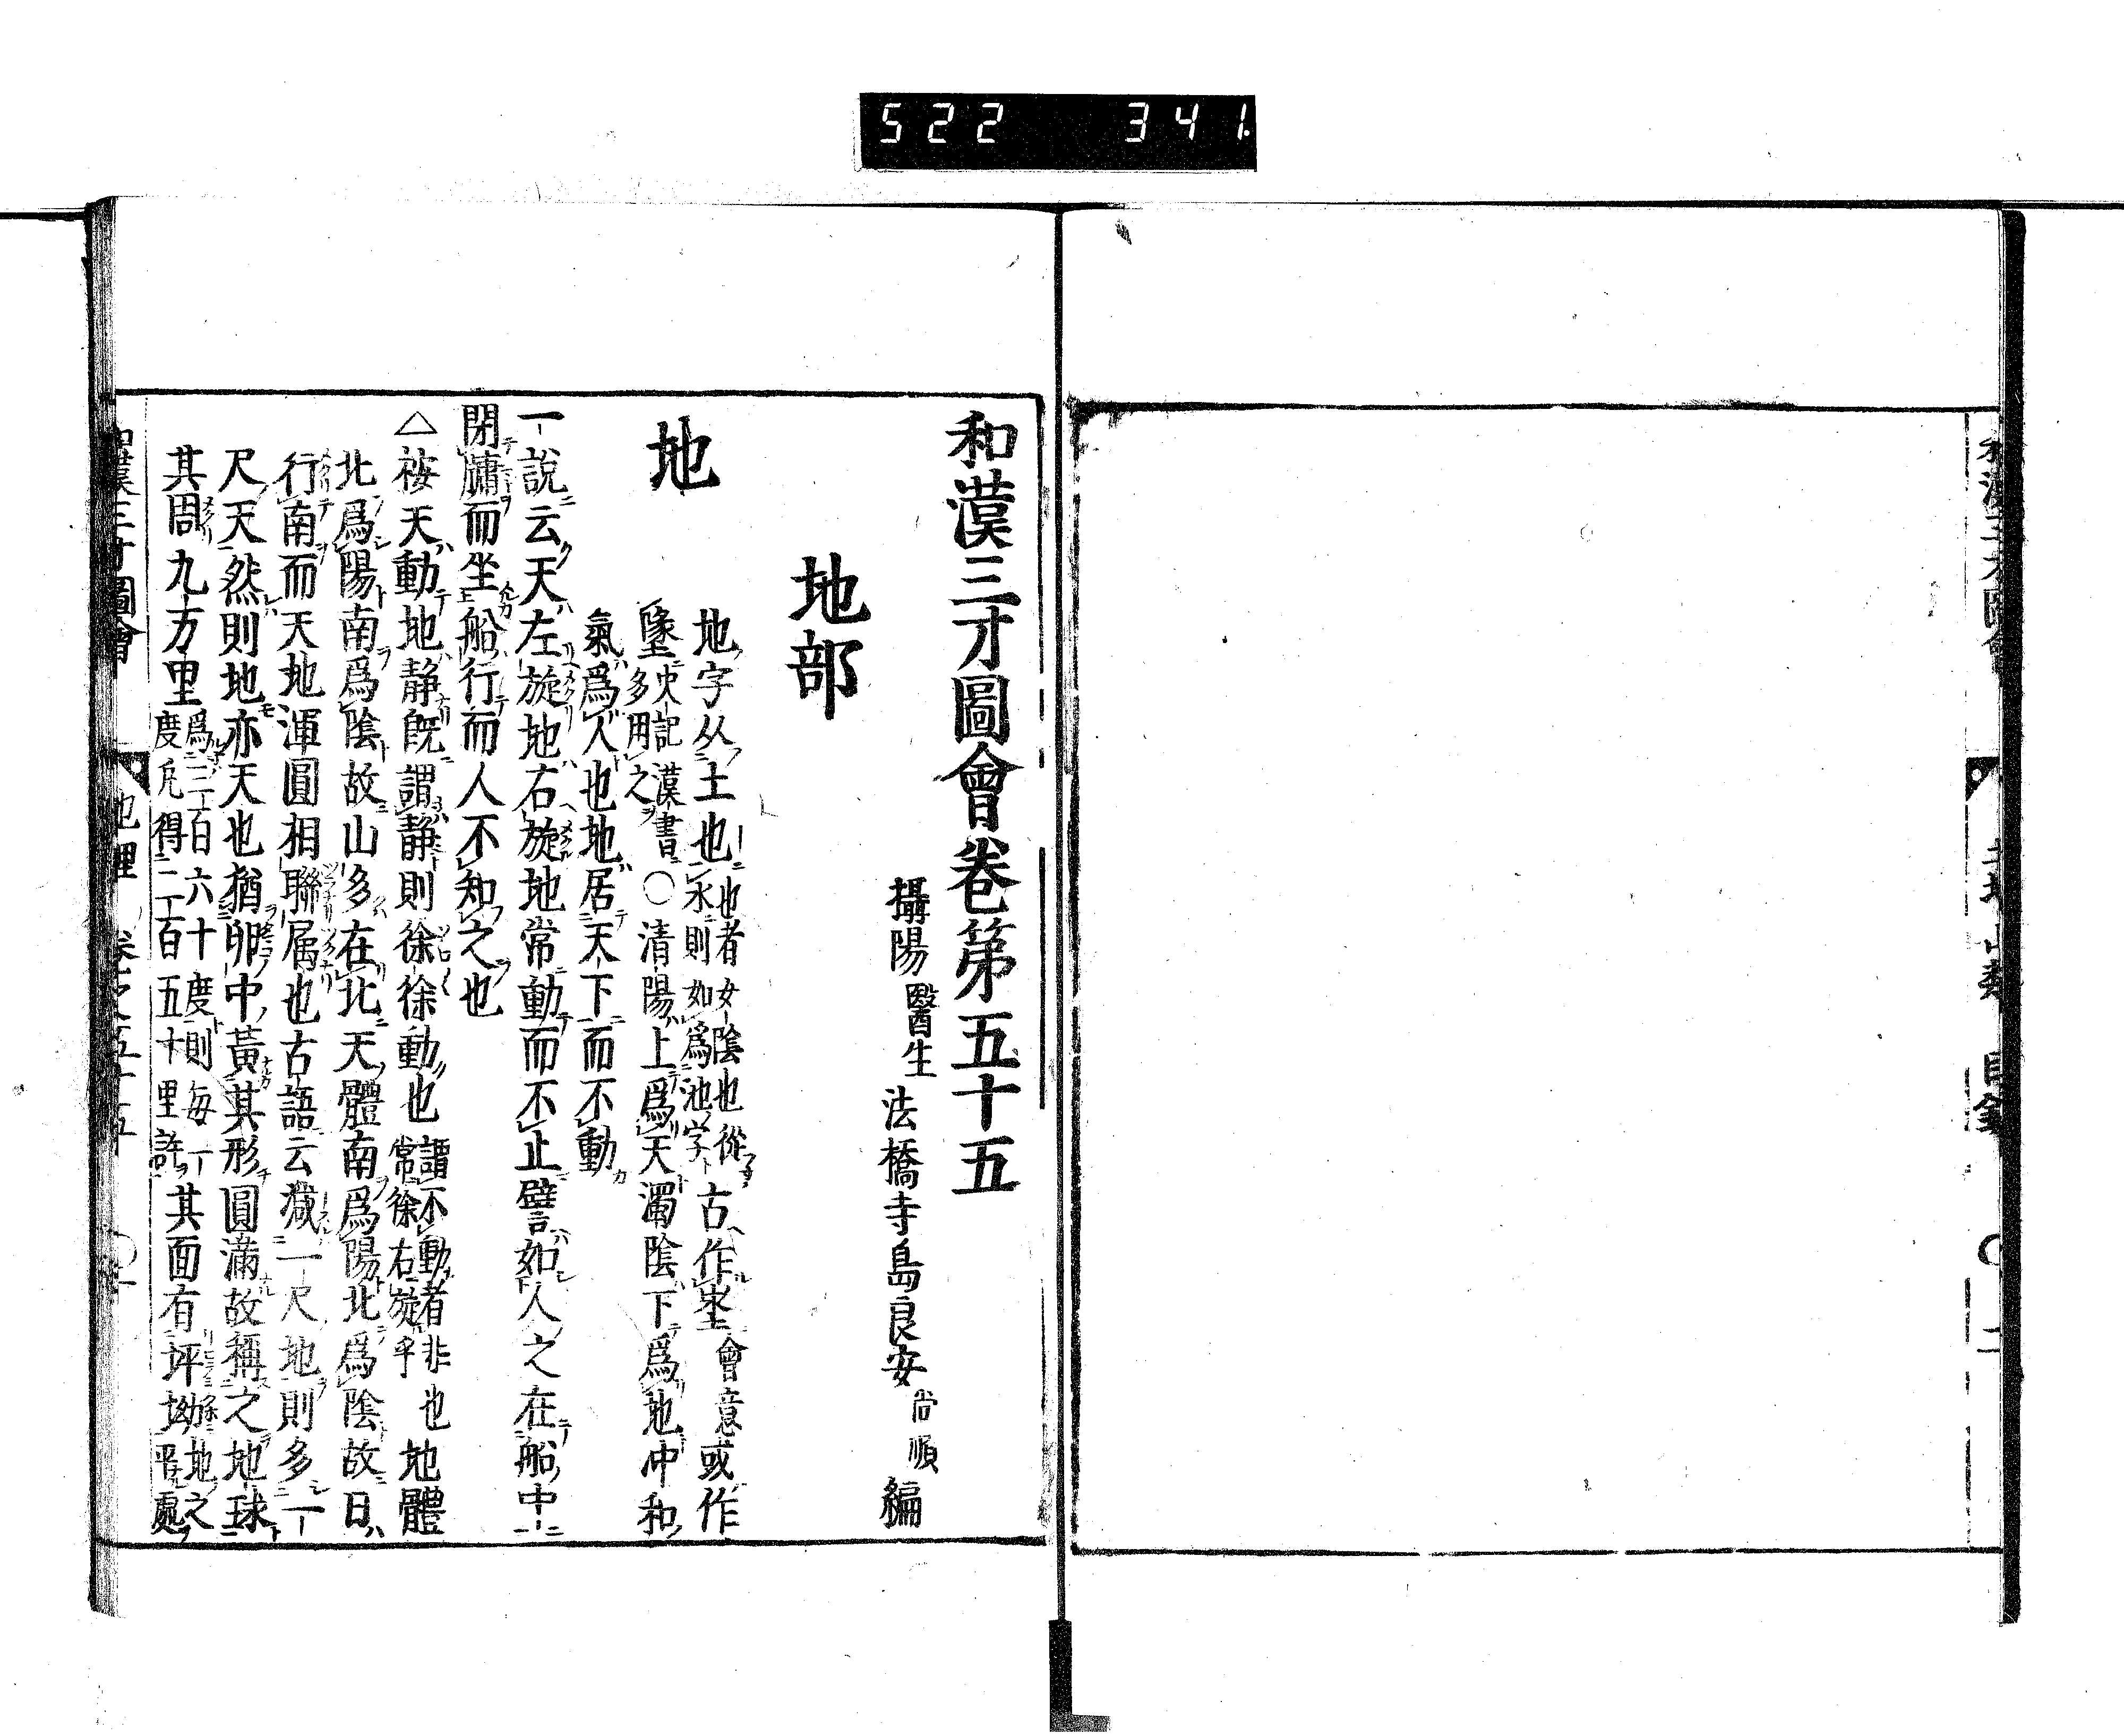 522 341
和漢三才圖會卷第五十五
攝陽 醫生 法橋寺島良安 尚順 編
地部
地
地字从土也 也者女陰也從 永則如爲池字 古作埊 會意或作
墬 史記漢書 多用之 ○清陽上爲天濁陰下爲地冲和
氣爲人也地居天下而不動
一說云天左旋地右旋地常動而不止譬如人之在船中
閉牖而坐船行而人不知之也
△桉天動地静既謂静則徐徐動也 謂不動者非也 常徐右旋乎 地體
北爲陽南爲陰故山多在北天體南爲陽北爲陰故日
行南而天地渾圓相聯属也古語云減一尺地則多一
尺天然則地亦天也猶卵中黃其形圓滿故稱之地球
其周九万里 爲三百六十度則每一 度凡得二百五十里許 其面有坪坳 地之 平處
和漢三才圖會 地理 卷之五十五 ○一